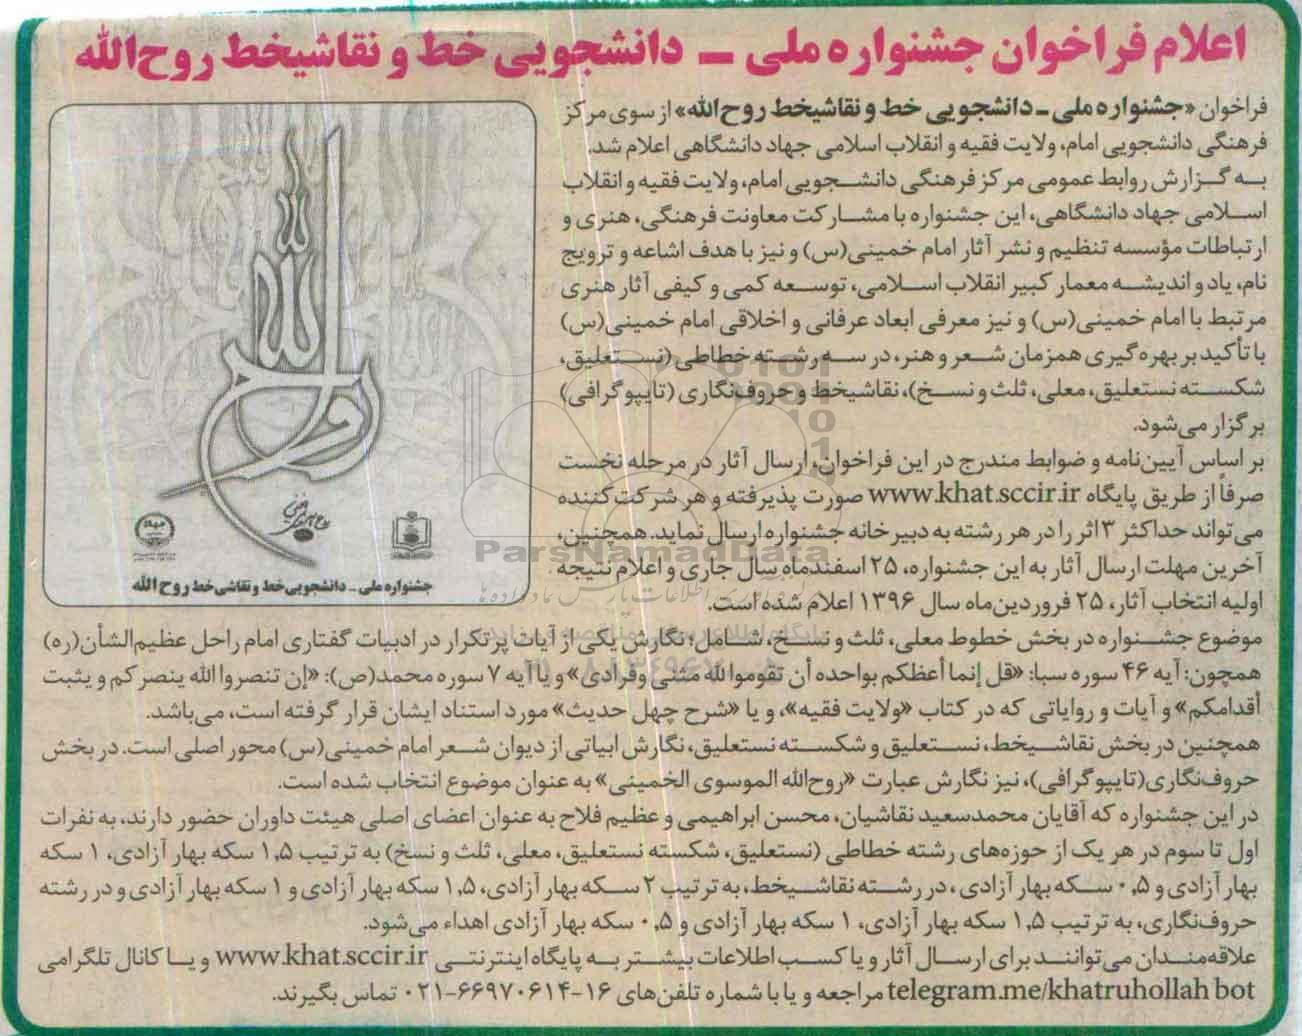 اعلام فراخوان جشنواره ملی – دانشجویی خط و نقاشیخط روح‌الله
فراخوان «جشنواره ملی - دانشجویی خط و نقاشیخط روح‌الله» از سوی مرکز
فرهنگی دانشجویی امام، ولایت فقیه و انقلاب اسلامی جهاد دانشگاهی اعلام شد.
به گزارش روابط عمومی مرکز فرهنگی دانشجویی امام، ولایت فقیه و انقلاب
اسلامی جهاد دانشگاهی، این جشنواره با مشارکت معاونت فرهنگی، هنری و
ارتباطات مؤسسه تنظیم و نشر آثار امام خمینی(س) و نیز با هدف اشاعه و ترویج
نام، یاد و اندیشه معمار کبیر انقلاب اسلامی، توسعه کمی و کیفی آثار هنری
مرتبط با امام خمینی(س) و نیز معرفی ابعاد عرفانی و اخلاقی امام خمینی(س)
با تأکید بر بهره‌گیری همزمان شعر و هنر، در سه رشته خطاطی (نستعلیق،
شکسته نستعلیق، معلی، ثلث و نسخ)، نقاشیخط و حروف‌نگاری (تایپوگرافی)
برگزار می‌شود.
بر اساس آیین‌نامه و ضوابط مندرج در این فراخوان، ارسال آثار در مرحله نخست
صرفاً از طریق پایگاه www.khat.sccir.ir صورت پذیرفته و هر شرکت‌کننده
می‌تواند حداکثر ۳ اثر را در هر رشته به دبیرخانه جشنواره ارسال نماید. همچنین،
آخرین مهلت ارسال آثار به این جشنواره، ۲۵ اسفندماه سال جاری و اعلام نتیجه
اولیه انتخاب آثار، ۲۵ فروردین‌ماه سال ۱۳۹۶ اعلام شده است.
موضوع جشنواره در بخش خطوط معلی، ثلث و نسخ، شامل؛ نگارش یکی از آیات پرتکرار در ادبیات گفتاری امام راحل عظیم‌الشأن(ره)
همچون: آیه ۴۶ سوره سبا: «قل إنما أعظکم بواحده أن تقوموا لله مثنی وفرادی» و یا آیه ۷ سوره محمد(ص): «إن تنصروا الله ینصرکم و یثبت
أقدامکم» و آیات و روایاتی که در کتاب «ولایت فقیه»، و یا «شرح چهل حدیث» مورد استناد ایشان قرار گرفته است، می‌باشد.
همچنین در بخش نقاشیخط، نستعلیق و شکسته نستعلیق، نگارش ابیاتی از دیوان شعر امام خمینی(س) محور اصلی است. در بخش
حروف‌نگاری(تایپوگرافی)، نیز نگارش عبارت «روح‌الله الموسوی الخمینی» به عنوان موضوع انتخاب شده است.
در این جشنواره که آقایان محمدسعید نقاشیان، محسن ابراهیمی و عظیم فلاح به عنوان اعضای اصلی هیئت داوران حضور دارند، به نفرات
اول تا سوم در هر یک از حوزه‌های رشته خطاطی (نستعلیق، شکسته نستعلیق، معلی، ثلث و نسخ) به ترتیب ۱٫۵ سکه بهار آزادی، ۱ سکه
بهار آزادی و ۰٫۵ سکه بهار آزادی، در رشته نقاشیخط، به ترتیب ۲ سکه بهار آزادی، ۱٫۵ سکه بهار آزادی و ۱ سکه بهار آزادی و در رشته
حروف‌نگاری، به ترتیب ۱٫۵ سکه بهار آزادی، ۱ سکه بهار آزادی و ۰٫۵ سکه بهار آزادی اهداء می‌شود.
علاقه‌مندان می‌توانند برای ارسال آثار و یا کسب اطلاعات بیشتر به پایگاه اینترنتی www.khat.sccir.ir و یا کانال تلگرامی
telegram.me/khatruhollah bot مراجعه و یا با شماره تلفن‌های ۱۶-۶۶۹۷۰۶۱۴-۰۲۱ تماس بگیرند.
روح الله
جهاد
جشنواره ملی - دانشجویی خط و نقاشی خط روح الله
ParsNamadData